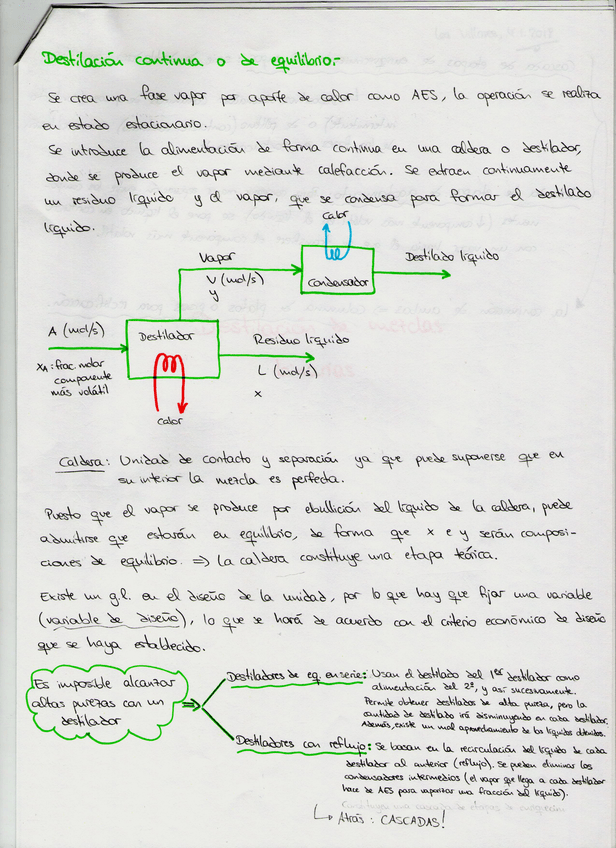 Destilación continua o de equilibrio.-
Se crea una fase vapor por aporte de calor como AES, la operación se realiza
en estado estacionario.
Se introduce la alimentación de forma continua en una caldera o destilador,
donde se produce el vapor mediante calefacción. Se extraen continuamente
un residuo líquido y el vapor, que se condensa para formar el destilado
líquido.
calor
Vapor
V (mol/s)
y
Condensador
Destilado líquido
A (mol/s)
xA: frac. molar
componente
más volátil
Destilador
calor
Residuo líquido
L (mol/s)
x
Caldera: Unidad de contacto y separación ya que puede suponerse que en
su interior la mezcla es perfecta.
Puesto que el vapor se produce por ebullición del líquido de la caldera, puede
admitirse que estarán en equilibrio, de forma que x e y serán composi-
ciones de equilibrio. => La caldera constituye una etapa teórica.
Existe un g.l. en el diseño de la unidad, por lo que hay que fijar una variable
(variable de diseño), lo que se hará de acuerdo con el criterio económico de diseño
que se haya establecido.
Es imposible alcanzar
altas purezas con un
destilador
=>
Destiladores de eq. en serie: Usan el destilado del 1er destilador como
alimentación del 2º, y así sucesivamente.
Permite obtener destilados de alta pureza, pero la
cantidad de destilado irá disminuyendo en cada destilador.
Además, existe un mal aprovechamiento de los líquidos obtenidos.
Destiladores con reflujo: Se basan en la recirculación del líquido de cada
destilador al anterior (reflujo), se pueden eliminar los
condensadores intermedios (el vapor que llega a cada destilador
hace de AES para vaporizar una fracción del líquido).
↳ Atrás: CASCADAS!